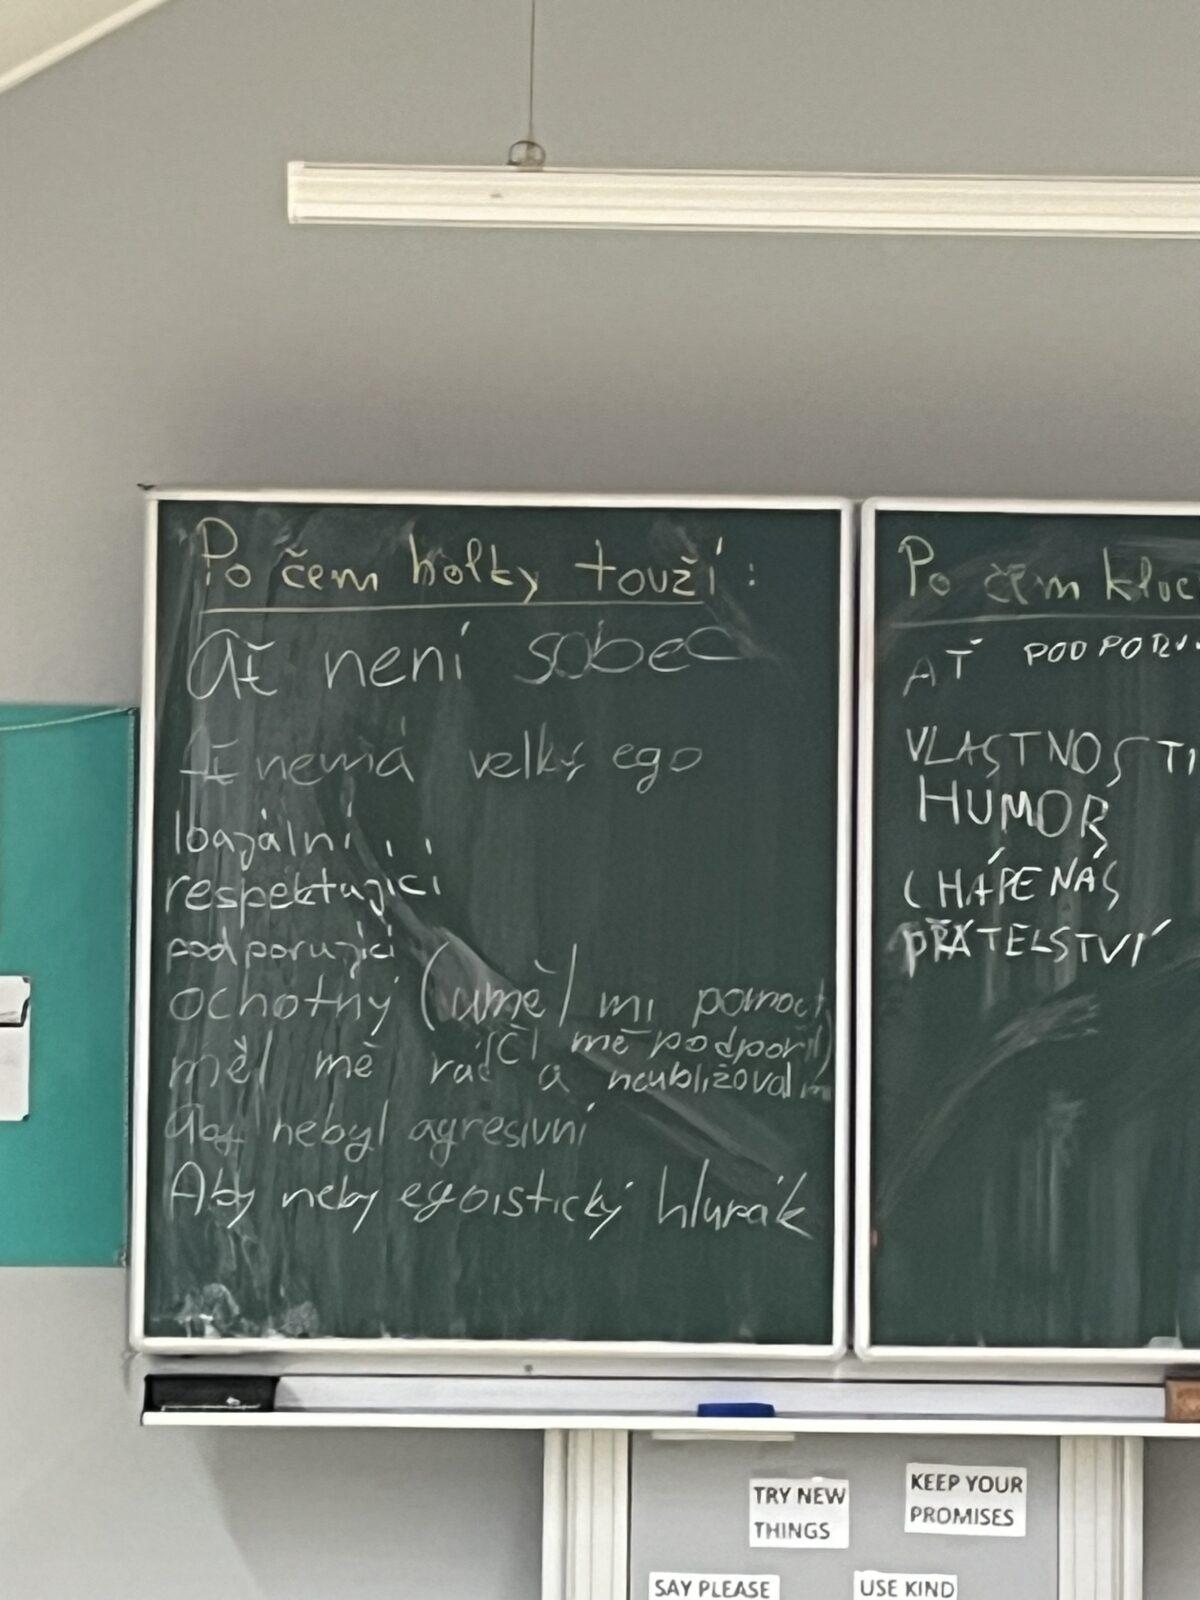 Po čem holky touží:
Ať není sobec
Ať nemá velký ego
loajální
respektující
podporující
ochotný (uměl mi pomoct
či mě podpořil)
měl mě rád a neubližoval
Aby nebyl agresivní
Aby neby egoistický hlupák
Po čem kluc
AŤ PODPORU
VLASTNOSTI
HUMOR
CHÁPE NÁS
PŘÁTELSTVÍ
TRY NEW
THINGS
KEEP YOUR
PROMISES
SAY PLEASE
USE KIND